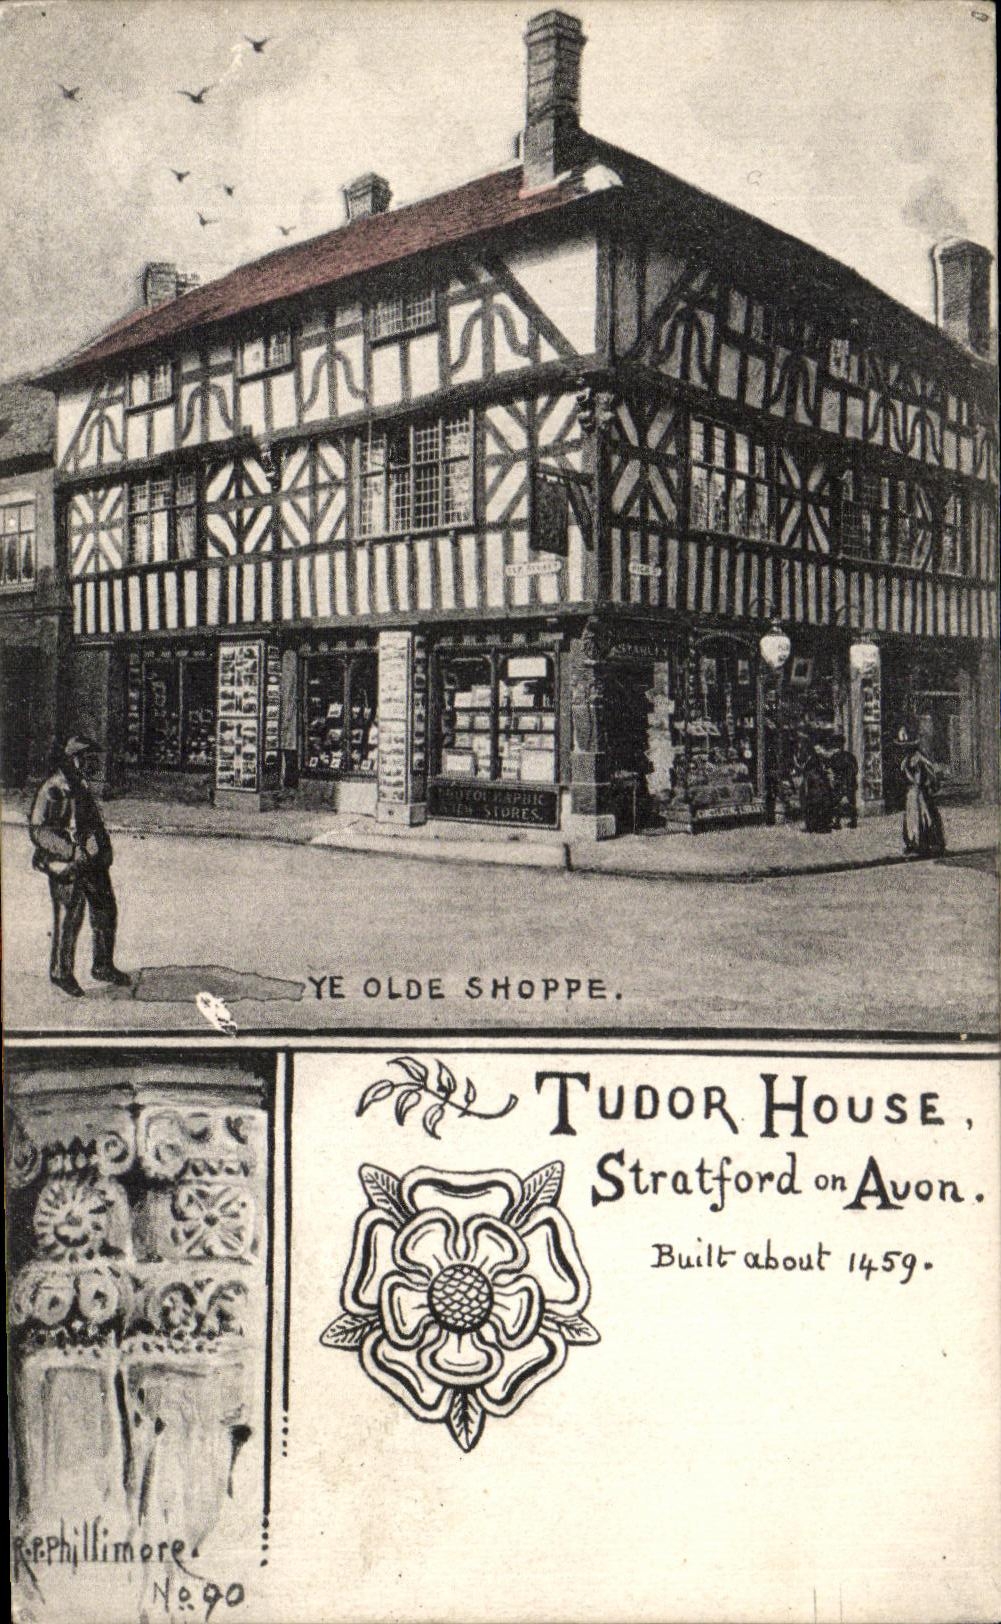 STANLEY
PHOTOGRAPHIC
VIEW STORES.
CIRCULATING LIBRARY
YE OLDE SHOPPE.
TUDOR HOUSE,
Stratford on Avon.
Built about 1459.
R.P.Phillimore.
No. 90